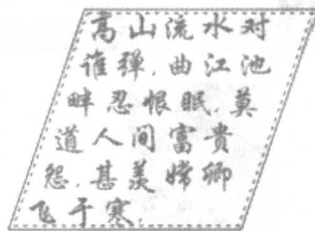 高山流水对
谁弹,曲江池
畔忍恨眠,莫
道人间富贵
怨,甚羡嫦卿
飞于寒,